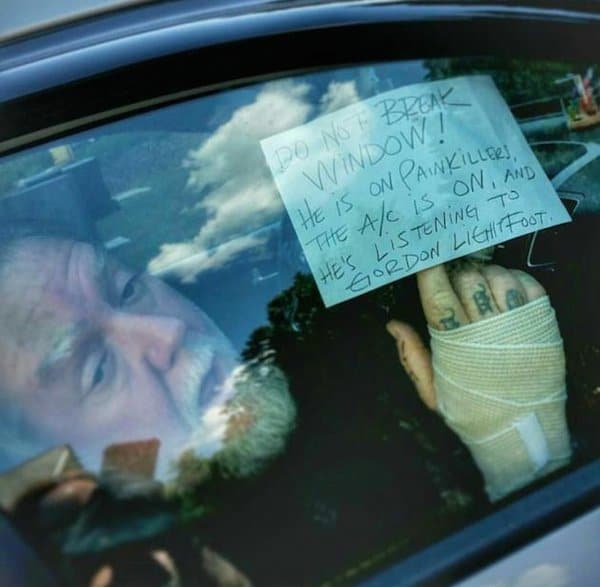 DO NOT BREAK
WINDOW!
HE IS ON PAINKILLERS,
THE A/C IS ON, AND
HE'S LISTENING TO
GORDON LIGHTFOOT.